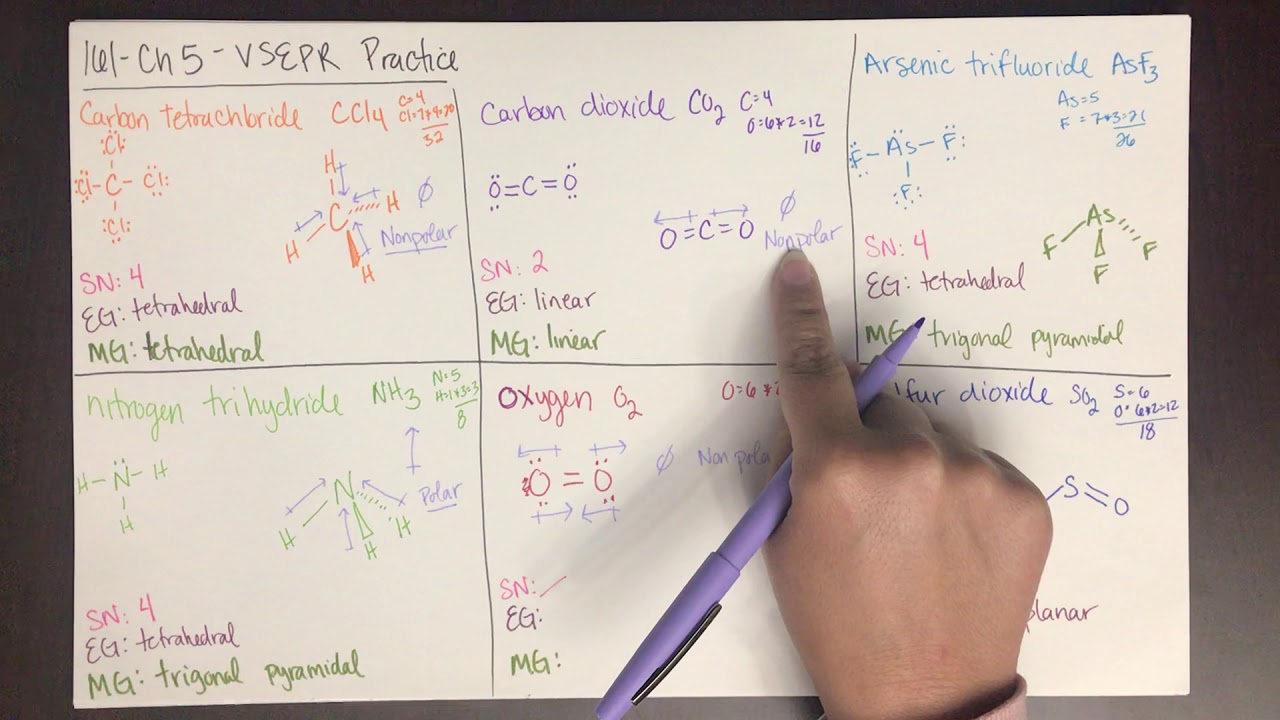 161-Ch5-VSEPR Practice
Carbon tetrachloride CCl4
C=4
Cl=7*4=28
32
:Cl:
:Cl-C-Cl:
:Cl:
H
C H
H
H
Ø
Nonpolar
SN: 4
EG: tetrahedral
MG: tetrahedral
Carbon dioxide CO2
C=4
O=6*2=12
16
O=C=O
O=C=O
Ø
Nonpolar
SN: 2
EG: linear
MG: linear
Arsenic trifluoride AsF3
As=5
F=7*3=21
26
:F-As-F:
:F:
As
F F F
SN: 4
EG: tetrahedral
MG: trigonal pyramidal
nitrogen trihydride NH3
N=5
H=1*3=3
8
H-N-H
H
N
H H H
Polar
SN: 4
EG: tetrahedral
MG: trigonal pyramidal
Oxygen O2
O=6*2
:O=O
Ø Nonpola
SN:
EG:
MG:
lfur dioxide SO2
S=6
O=6*2=12
18
S=O
planar